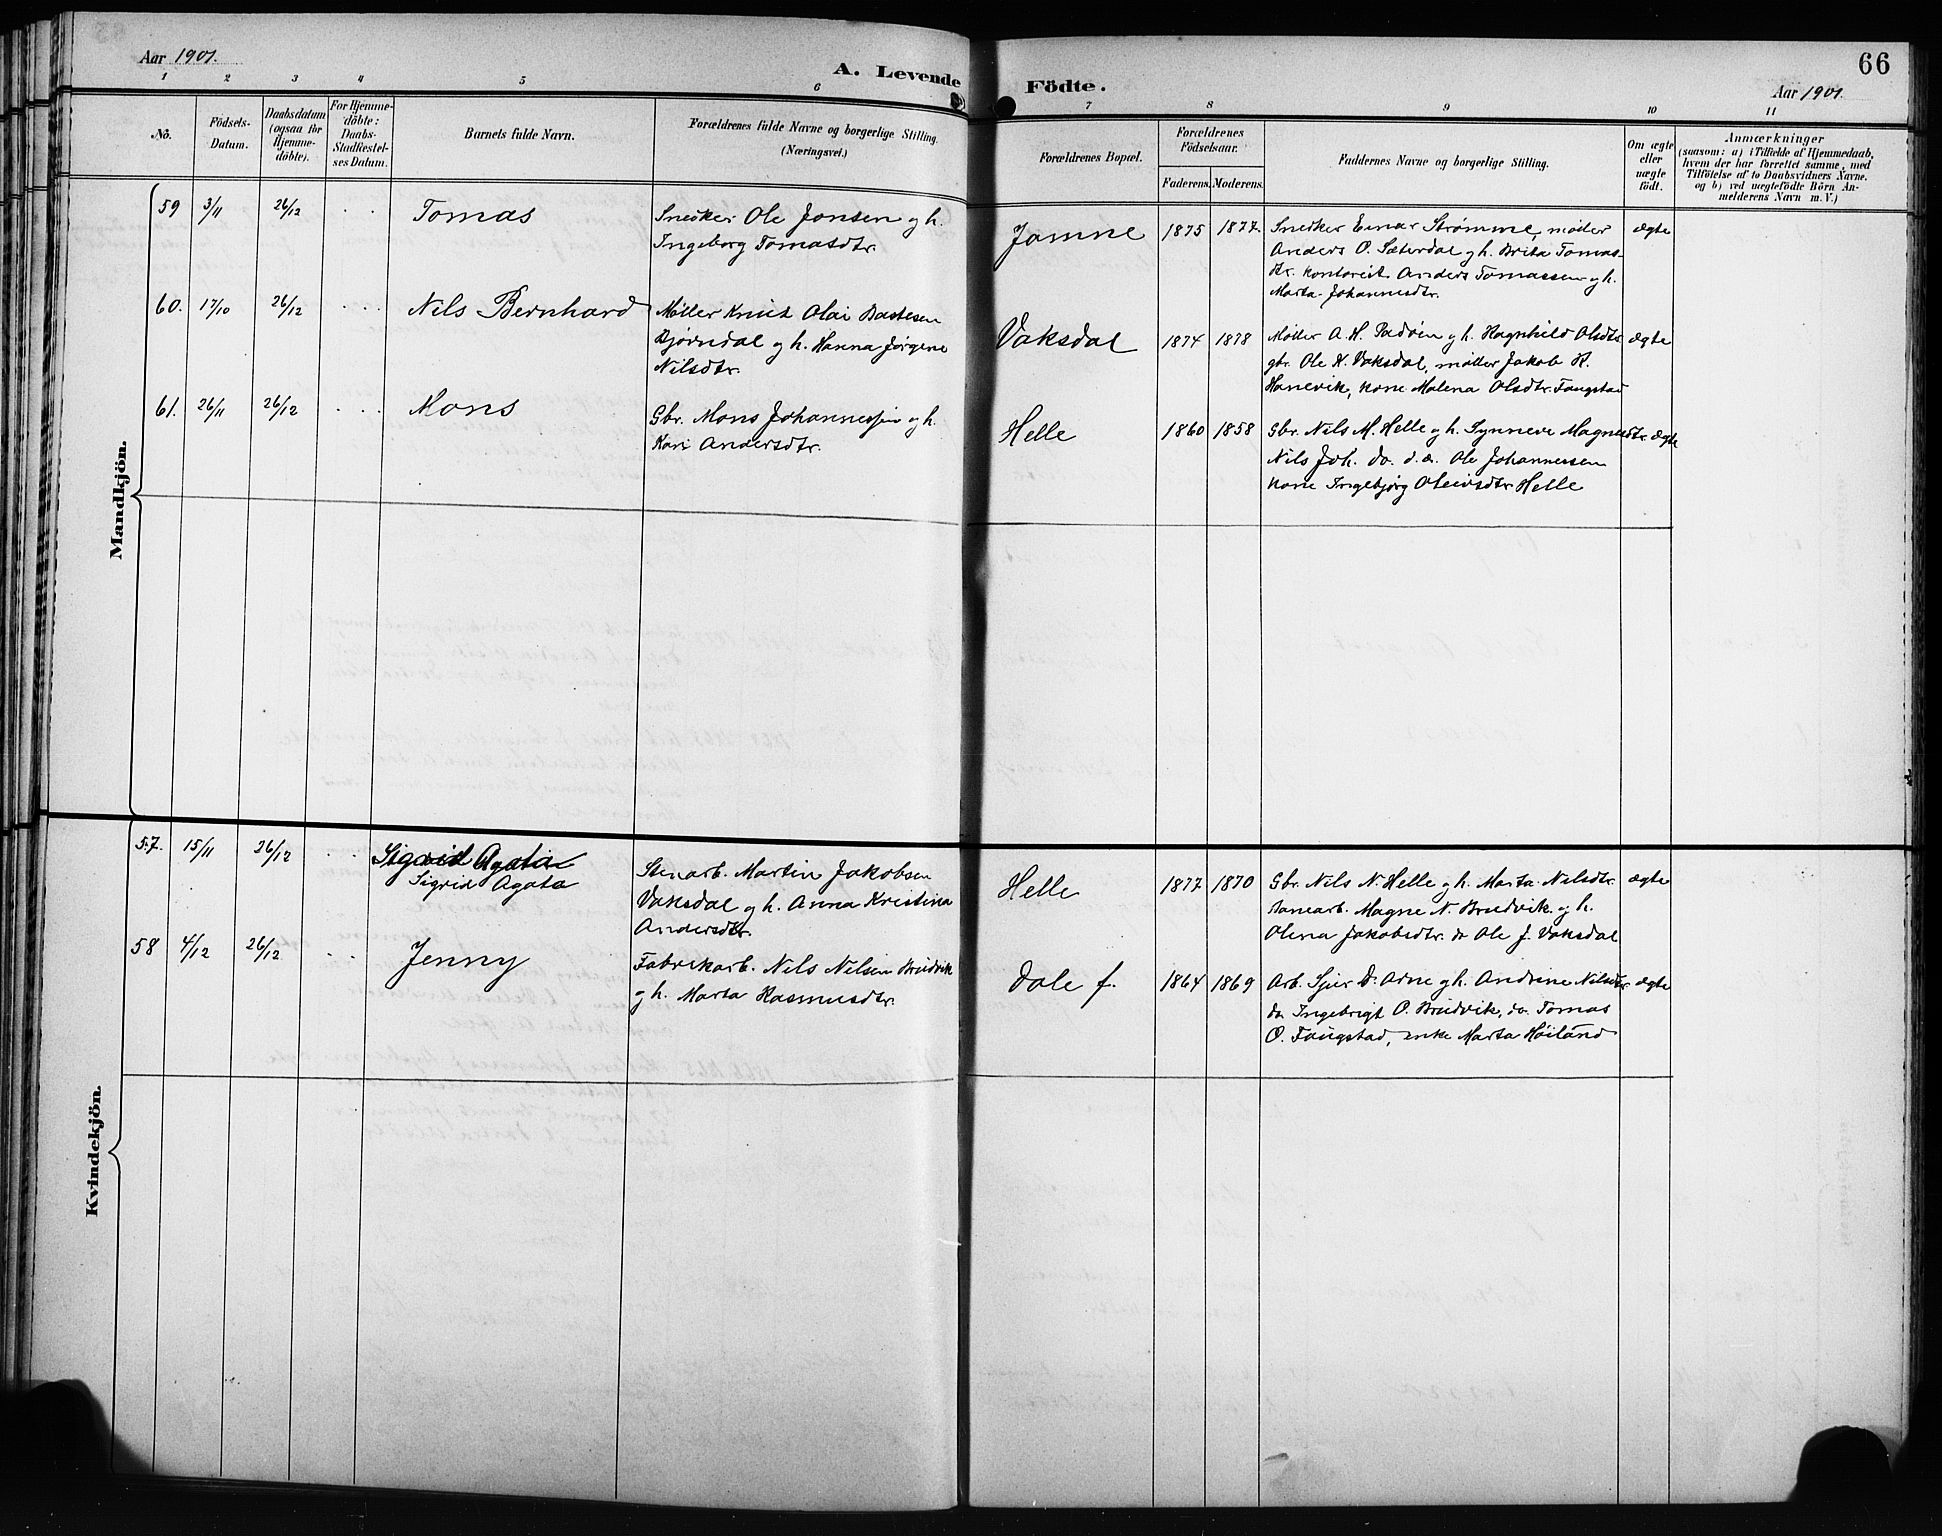 Aar 1901.
A. Levende Födte.
Aar 1901.
66
1 2 3 4 5 6 7 8 9 10 11
No.
Födsels-Datum.
Daabsdatum (ogsaa for Hjemme-döbte).
For Hjemme-döbte: Daabs-Stadfæstel-ses Datum.
Barnets fulde Navn.
Forældrenes fulde Navne og borgerlige Stilling.
(Næringsvei.)
Forældrenes Bopæl.
Forældrenes Födselsaar.
Faderens. Moderens.
Faddernes Navne og borgerlige Stilling.
Om ægte eller uægte födt.
Anmærkninger
(saasom: a) i Tilfælde af Hjemmedaab,
hvem der har forrettet samme, med
Tilföielse af to Daabsvidners Navne.
og b) ved uægtefödte Börn An-
melderens Navn m. V.)
Mandkjön.
59 3/11 26/12 . . Tomas
Snedker Ole Jonsen og h.
Ingeborg Tomasdtr.
Jamne 1875 1877.
Snedker Einar Strømme, møller
Anders O. Sæterdal og h. Brita Tomas-
dtr. kontorist Anders Tomassen og h.
Marta Johannesdtr.
ægte
60. 17/10 26/12 . . . Nils Bernhard
Møller Knut Olai Bastesen
Bjørndal og h. Hanna Jørgine
Nilsdtr.
Vaksdal 1874 1878
Møller A. H. og h. Ragnhild Olsdtr
gbr. Ole K. Vaksdal, møller Jakob R.
Hanevik, kone Malena Olsdtr. Faugstad
ægte
61. 26/11 26/12 . . . Mons
Gbr. Mons Johannessen og h.
Kari Andersdtr.
Helle 1860 1858
Gbr. Nils M. Helle og h. Synneve Magnesdtr.
Nils Joh. do. d. æ. Ole Johannessen
kone Ingebjørg Oleivsdtr. Helle
ægte
Kvindekjön.
57. 15/11 26/12 . . Sigrid Agatia
Sigrid Agata
Stenarb. Martin Jakobsen
Vaksdal og h. Anna Kristina
Andersdtr.
Helle 1877 1870
Gbr. Nils N. Helle og h. Marta Nilsdtr.
banearb. Magne N. Brudvik og h.
Olina Jakobsdtr. do Ole J. Vaksdal
ægte
58 4/12 26/12 . . Jenny
Fabrikarb. Nils Nilsen Brudvik
og h. Marta Rasmusdtr.
Dale f. 1864 1869
Arb. Sjur D. Arne og h. Andrine Nilsdtr.
do Ingebrigt O. Brudvik, do. Tomas
O. Faugstad, enke Marta Høiland
ægte